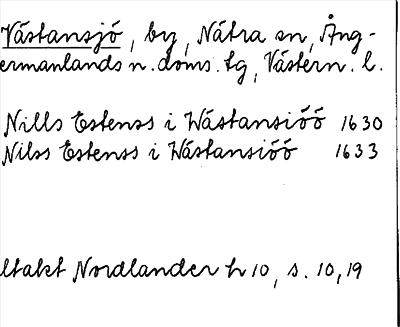 Västansjö, by, Nätra sn, Ång-
ermanlands n. doms. tg, Västern. l.
Nills Estenss i Wästansiöö 1630
Nilss Estenss i Wästansiöö 1633
ltakt Nordlander h 10, s. 10, 19